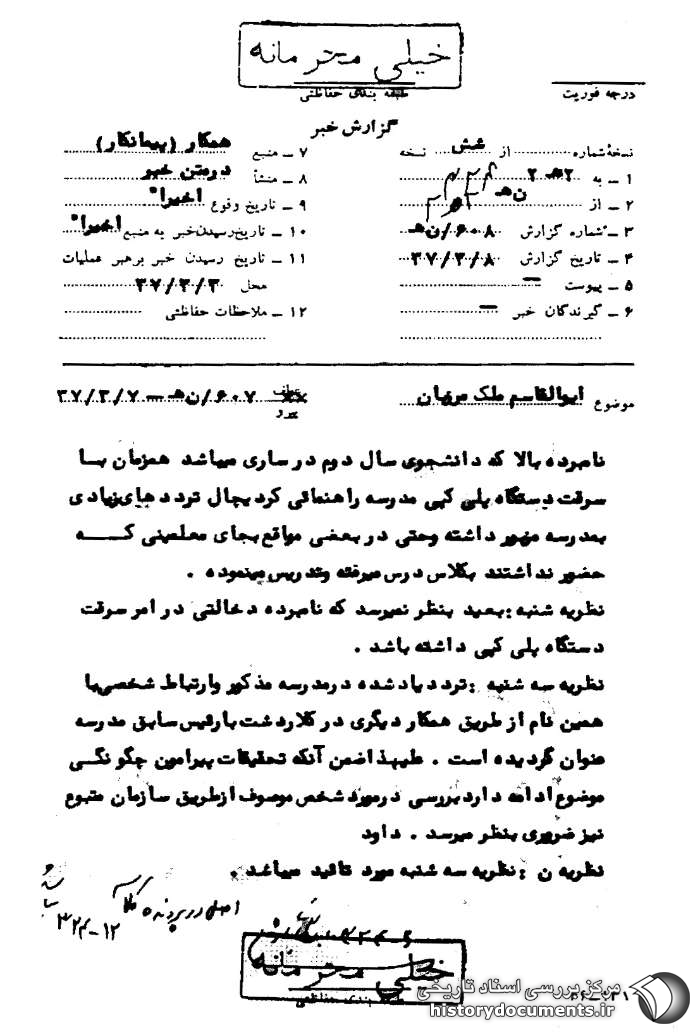 خیلی محرمانه
طبقه بندی حفاظتی
درجه فوریت
گزارش خبر
نسخهٔ شماره از شش نسخه
۱ ـ به ۲هـ۲
۲ ـ از ن هـ
۳ ـ شماره گزارش ۶۰۸/ن هـ
۴ ـ تاریخ گزارش ۳۷/۳/۸
۵ ـ پیوست —
۶ ـ گیرندگان خبر —
۷ ـ منبع همکار (پیمانکار)
۸ ـ منشأ درمتن خبر
۹ ـ تاریخ وقوع اخیراً
۱۰ ـ تاریخ رسیدن خبر به منبع اخیراً
۱۱ ـ تاریخ رسیدن خبر برهبر عملیات
محل ۳۷/۳/۳
۱۲ ـ ملاحظات حفاظتی
موضوع ابوالقاسم ملک مرزبان
عطف
پیرو ۶۰۷/ن هـ — ۳۷/۳/۷
نامبرده بالا که دانشجوی سال دوم در ساری میباشد همزمان بـا
سرقت دستگاه پلی کپی مدرسه راهنمائی کردیچال تردد های زیادی
بمدرسه مزبور داشته وحتی در بعضی مواقع بجای معلمینی کـــه
حضور نداشتند بکلاس درس میرفته وتدریس مینموده .
نظریه شنبه : بعید بنظر نمیرسد که نامبرده دخالتی در امر سرقت
دستگاه پلی کپی داشته باشد .
نظریه سه شنبه : تردد یاد شده درمدرسه مذکور وارتباط شخصی با
همین نام از طریق همکار دیگری در کلاردشت با رئیس سابق مدرسه
عنوان گردیده است . علیهذا ضمن آنکه تحقیقات پیرامون چگونگـی
موضوع ادامه دارد بررسی درمورد شخص موصوف ازطریق سازمان متبوع
نیز ضروری بنظر میرسد . داود
نظریه ن : نظریه سه شنبه مورد تائید میباشد .
اصل در پرونده
۳۲۴-۱۲
خیلی محرمانه
طبقه بندی حفاظتی
مرکز بررسی اسناد تاریخی
historydocuments.ir